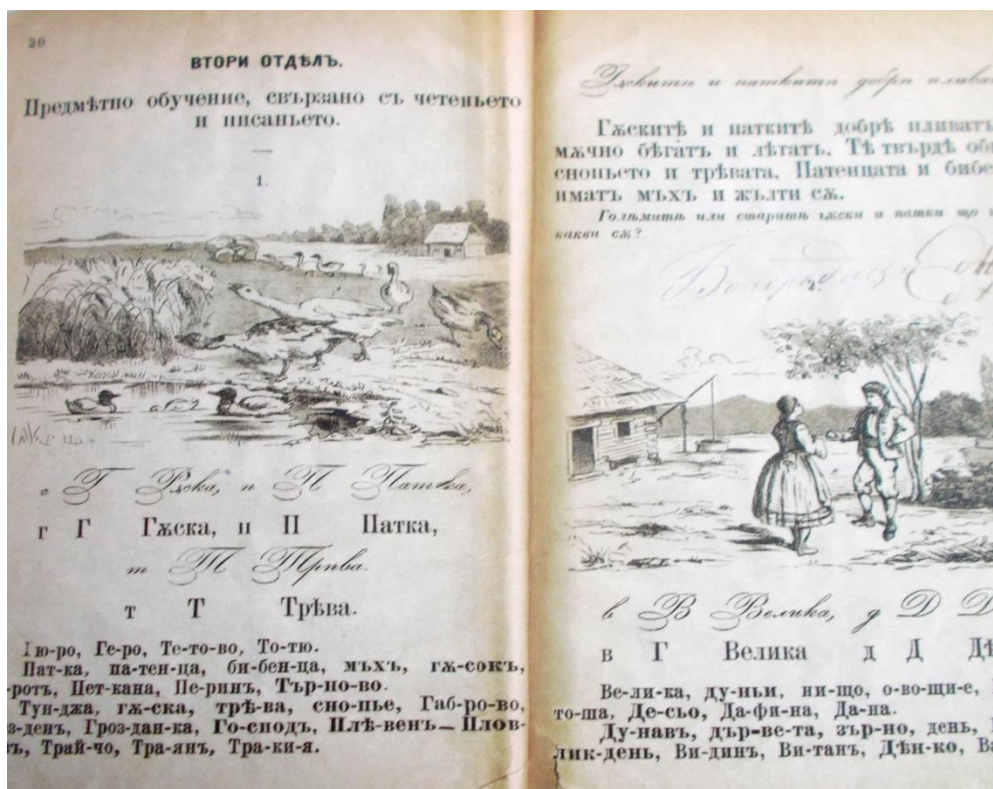 20
ВТОРИ ОТДѢЛЪ.
Предмѣтно обучение, свързано съ четеньето
и писаньето.
1.
г Г Гѫска, п П Патка,
г Г Гѫска, п П Патка,
т Т Трѣва.
т Т Трѣва.
Гю-ро, Ге-ро, Те-то-во, То-тю.
Пат-ка, па-тен-ца, би-бен-ца, мъхъ, гѫ-сокъ,
-ротъ, Пет-кана, Пе-ринъ, Тър-но-во.
Тун-джа, гѫ-ска, трѣ-ва, сно-пье, Габ-ро-во,
з-денъ, Гроз-дан-ка, Го-сподъ, Плѣ-венъ — Плов-
въ, Трай-чо, Тра-янъ, Тра-ки-я.
Гѫскитѣ и паткитѣ добрѣ плива
Гѫскитѣ и паткитѣ добрѣ пливатъ
мѫчно бѣгатъ и лѣтатъ. Тѣ твърдѣ об
снопьето и трѣвата. Патенцата и бибе
иматъ мъхъ и жълти сѫ.
Голѣмитѣ или старитѣ гѫски и патки що
какви сѫ?
2.
в В Велика, д Д
в Г Велика д Д Дѣ
Ве-ли-ка, ду-ньи, ни-що, о-во-щи-е,
то-ша, Де-сьо, Да-фи-на, Да-на.
Ду-навъ, дър-ве-та, зър-но, день,
лик-день, Ви-динъ, Ви-танъ, Дѣн-ко, Ва